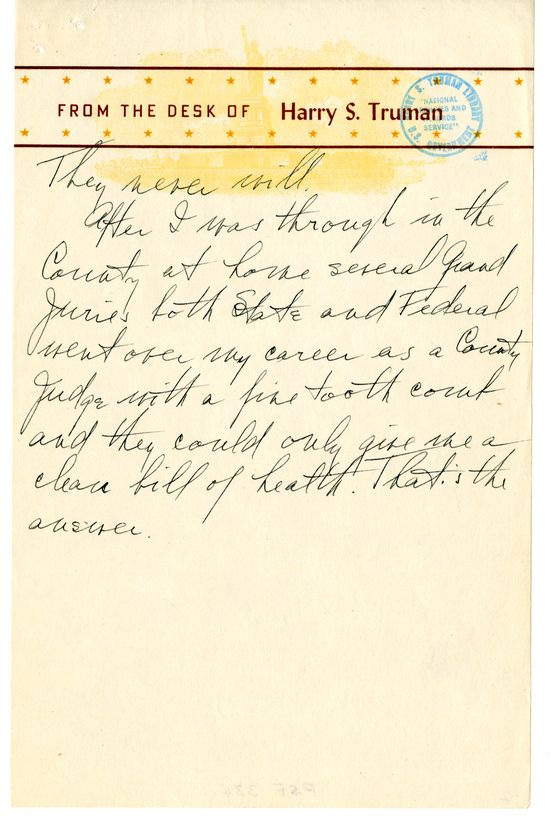 FROM THE DESK OF Harry S. Truman
HARRY S. TRUMAN LIBRARY
"NATIONAL
ARCHIVES AND
RECORDS
SERVICE"
U.S. GOVERNMENT
They never will.
After I was through in the
County at home several Grand
Juries both State and Federal
went over my career as a County
Judge with a fine tooth comb
and they could only give me a
clean bill of health. That's the
answer.